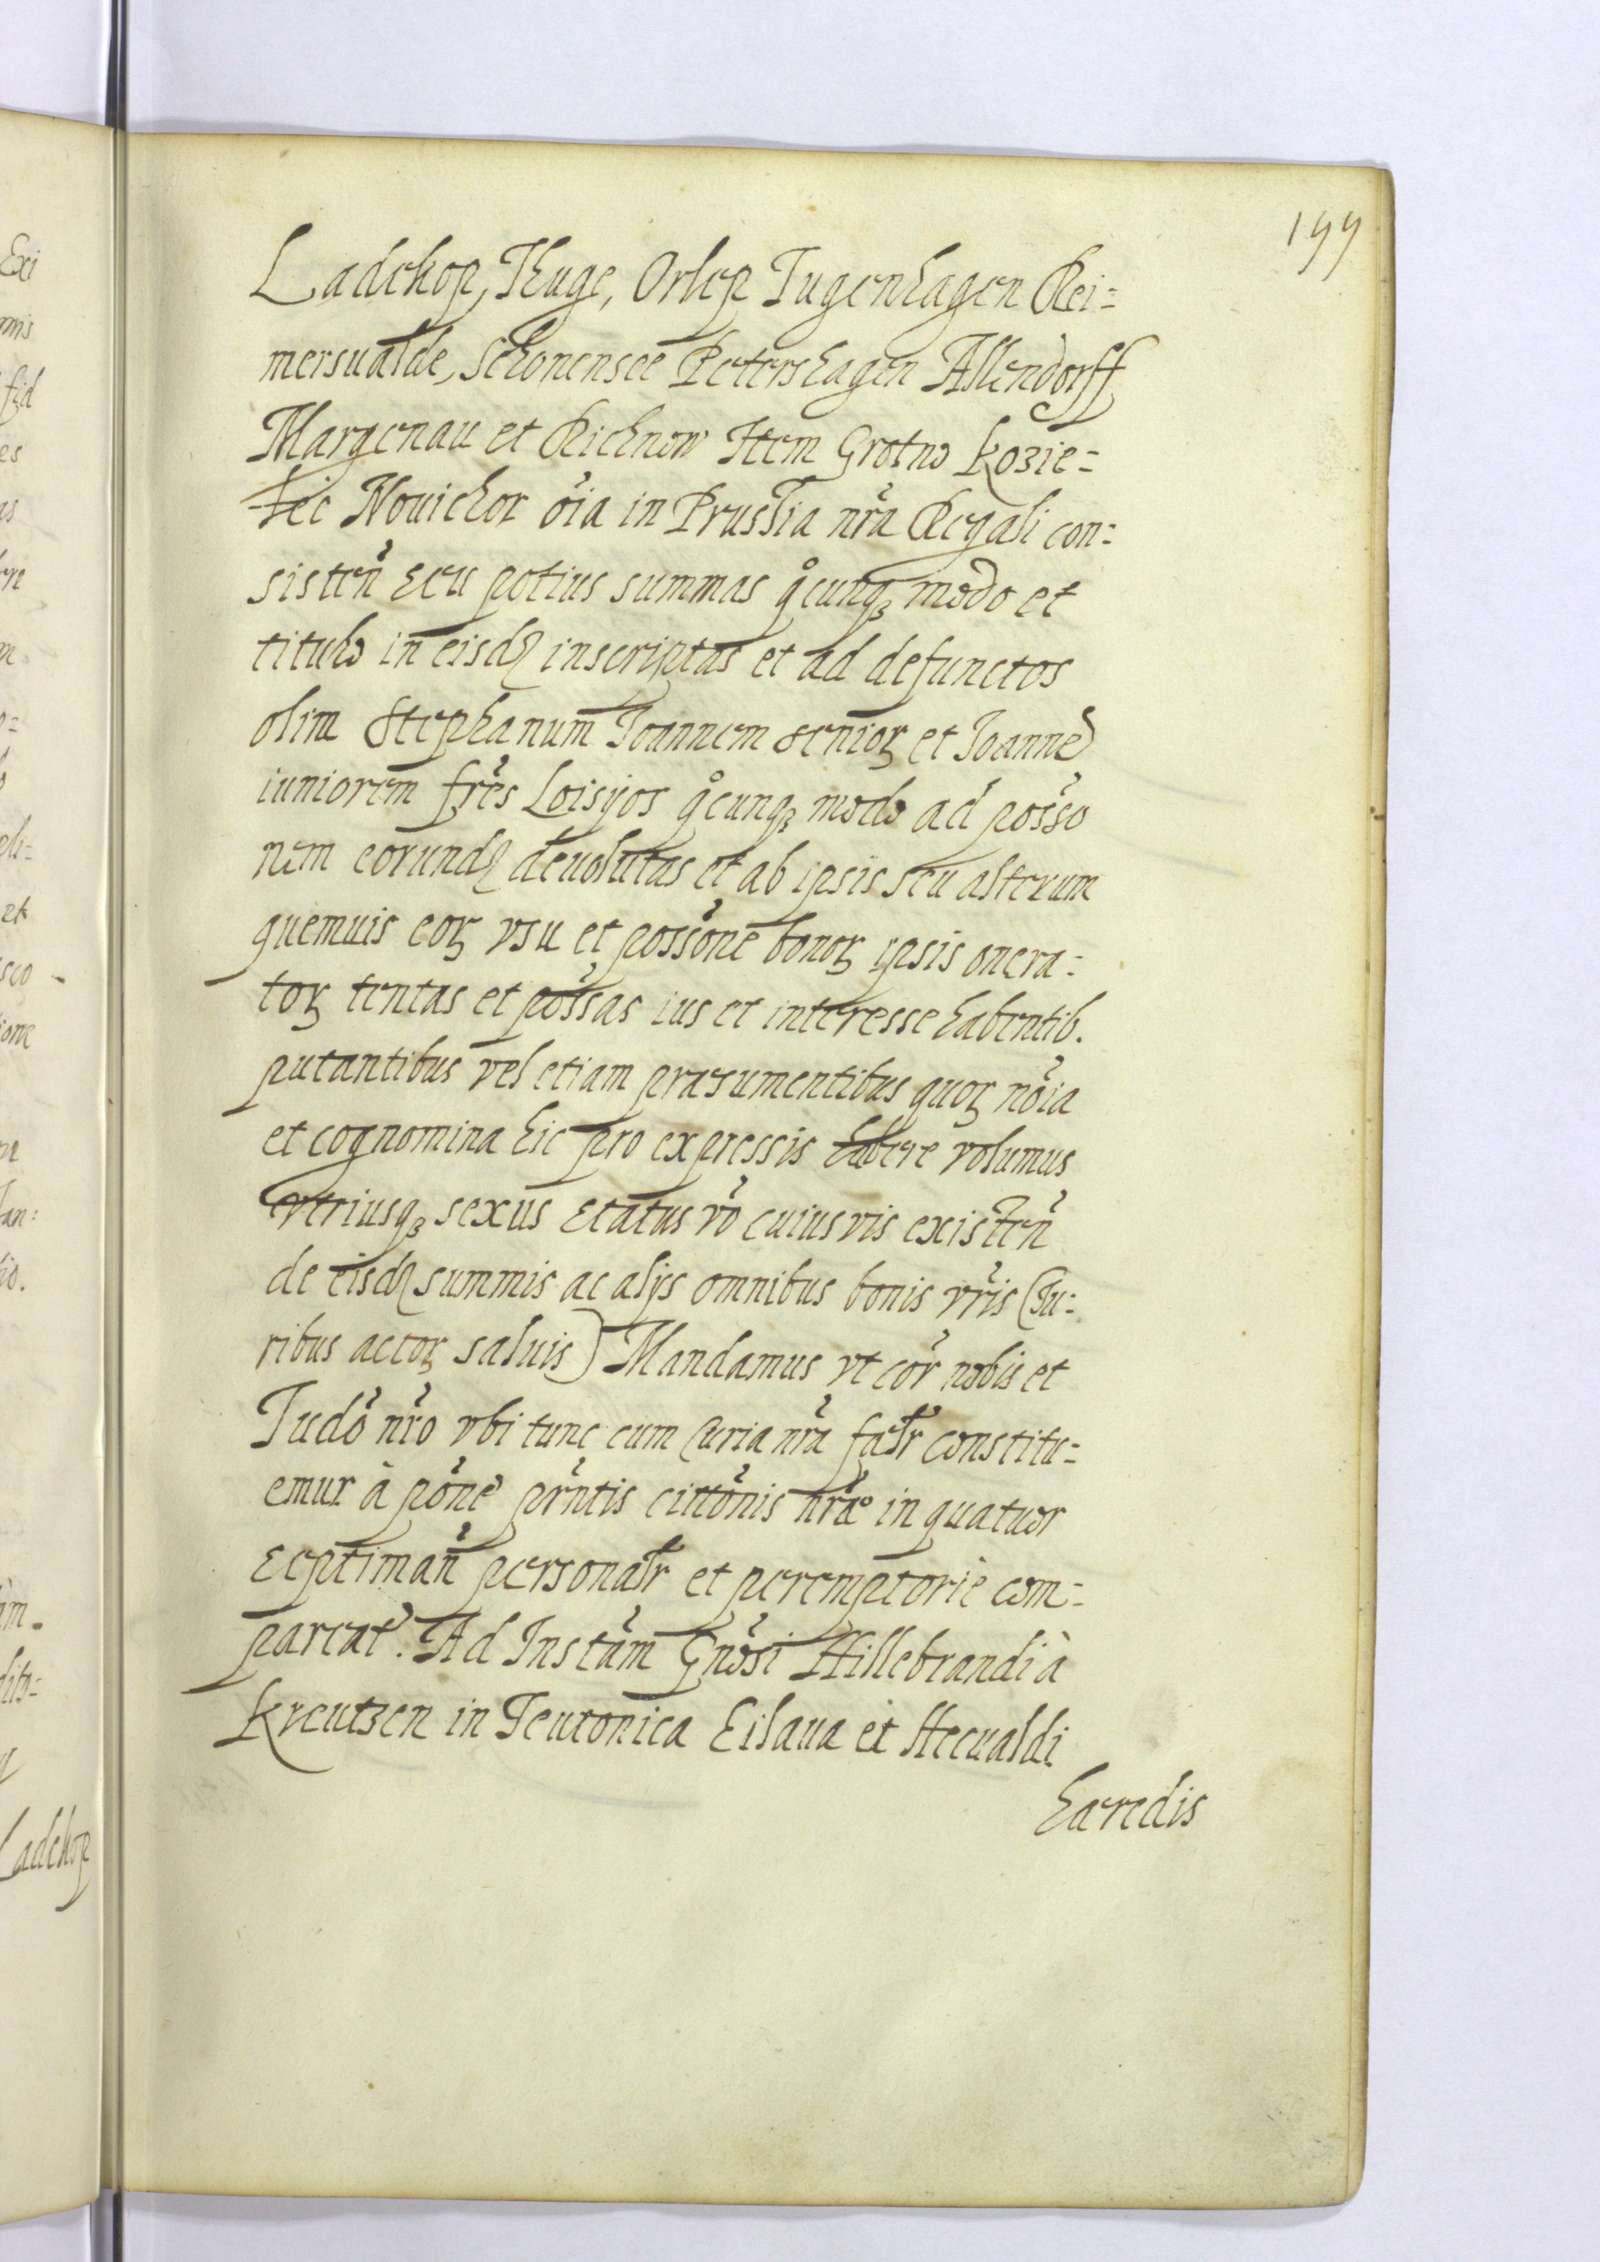 199
Ladekop, Thuge, Orlep Tugenhagen Rei=
mersualde, Schonensee Petershagen Allendorff
Margenau et Richnow Item Grotno Kozie=
lec Nouichor oĩa in Prussia nr̃a Regali con=
sisteñ seu potius summas qͦcunqꝫ modo et
titulo in eisdꝫ inscriptas et ad defunctos
olim Stephanum Joannem senioꝝ et Joannẽ
iuniorem fr̃es Loisyos qͦcunqꝫ modo ad posso
nem eorundꝫ deuolutas et ab ipsis seu alterum
quemuis eoꝝ vsu et possõne bonoꝝ ipsis onera=
toꝝ tentas et possas ius et interesse habentib.
putantibus vel etiam præsumentibus quoꝝ nõia
et cognomina hic pro expressis habere volumus
vtriusqꝫ sexus status vo cuiusvis existeñ
de eisdꝫ summis ac alijs omnibus bonis vr̃is (Iu=
ribus actoꝝ saluis) Mandamus vt cor̃ nobis et
Iudõ nr̃o vbi tunc cum Curia nr̃a falr constitu=
emur à põne pr̃ntis citõnis nr̃æ in quatuor
septimañ personalr et peremptoriè com=
pareat̃. Ad Instam̃ Gnõsi Hillebrandi à
Kreutzen in Teutonica Eilaua et Hecualdi
haredis
Ladekop